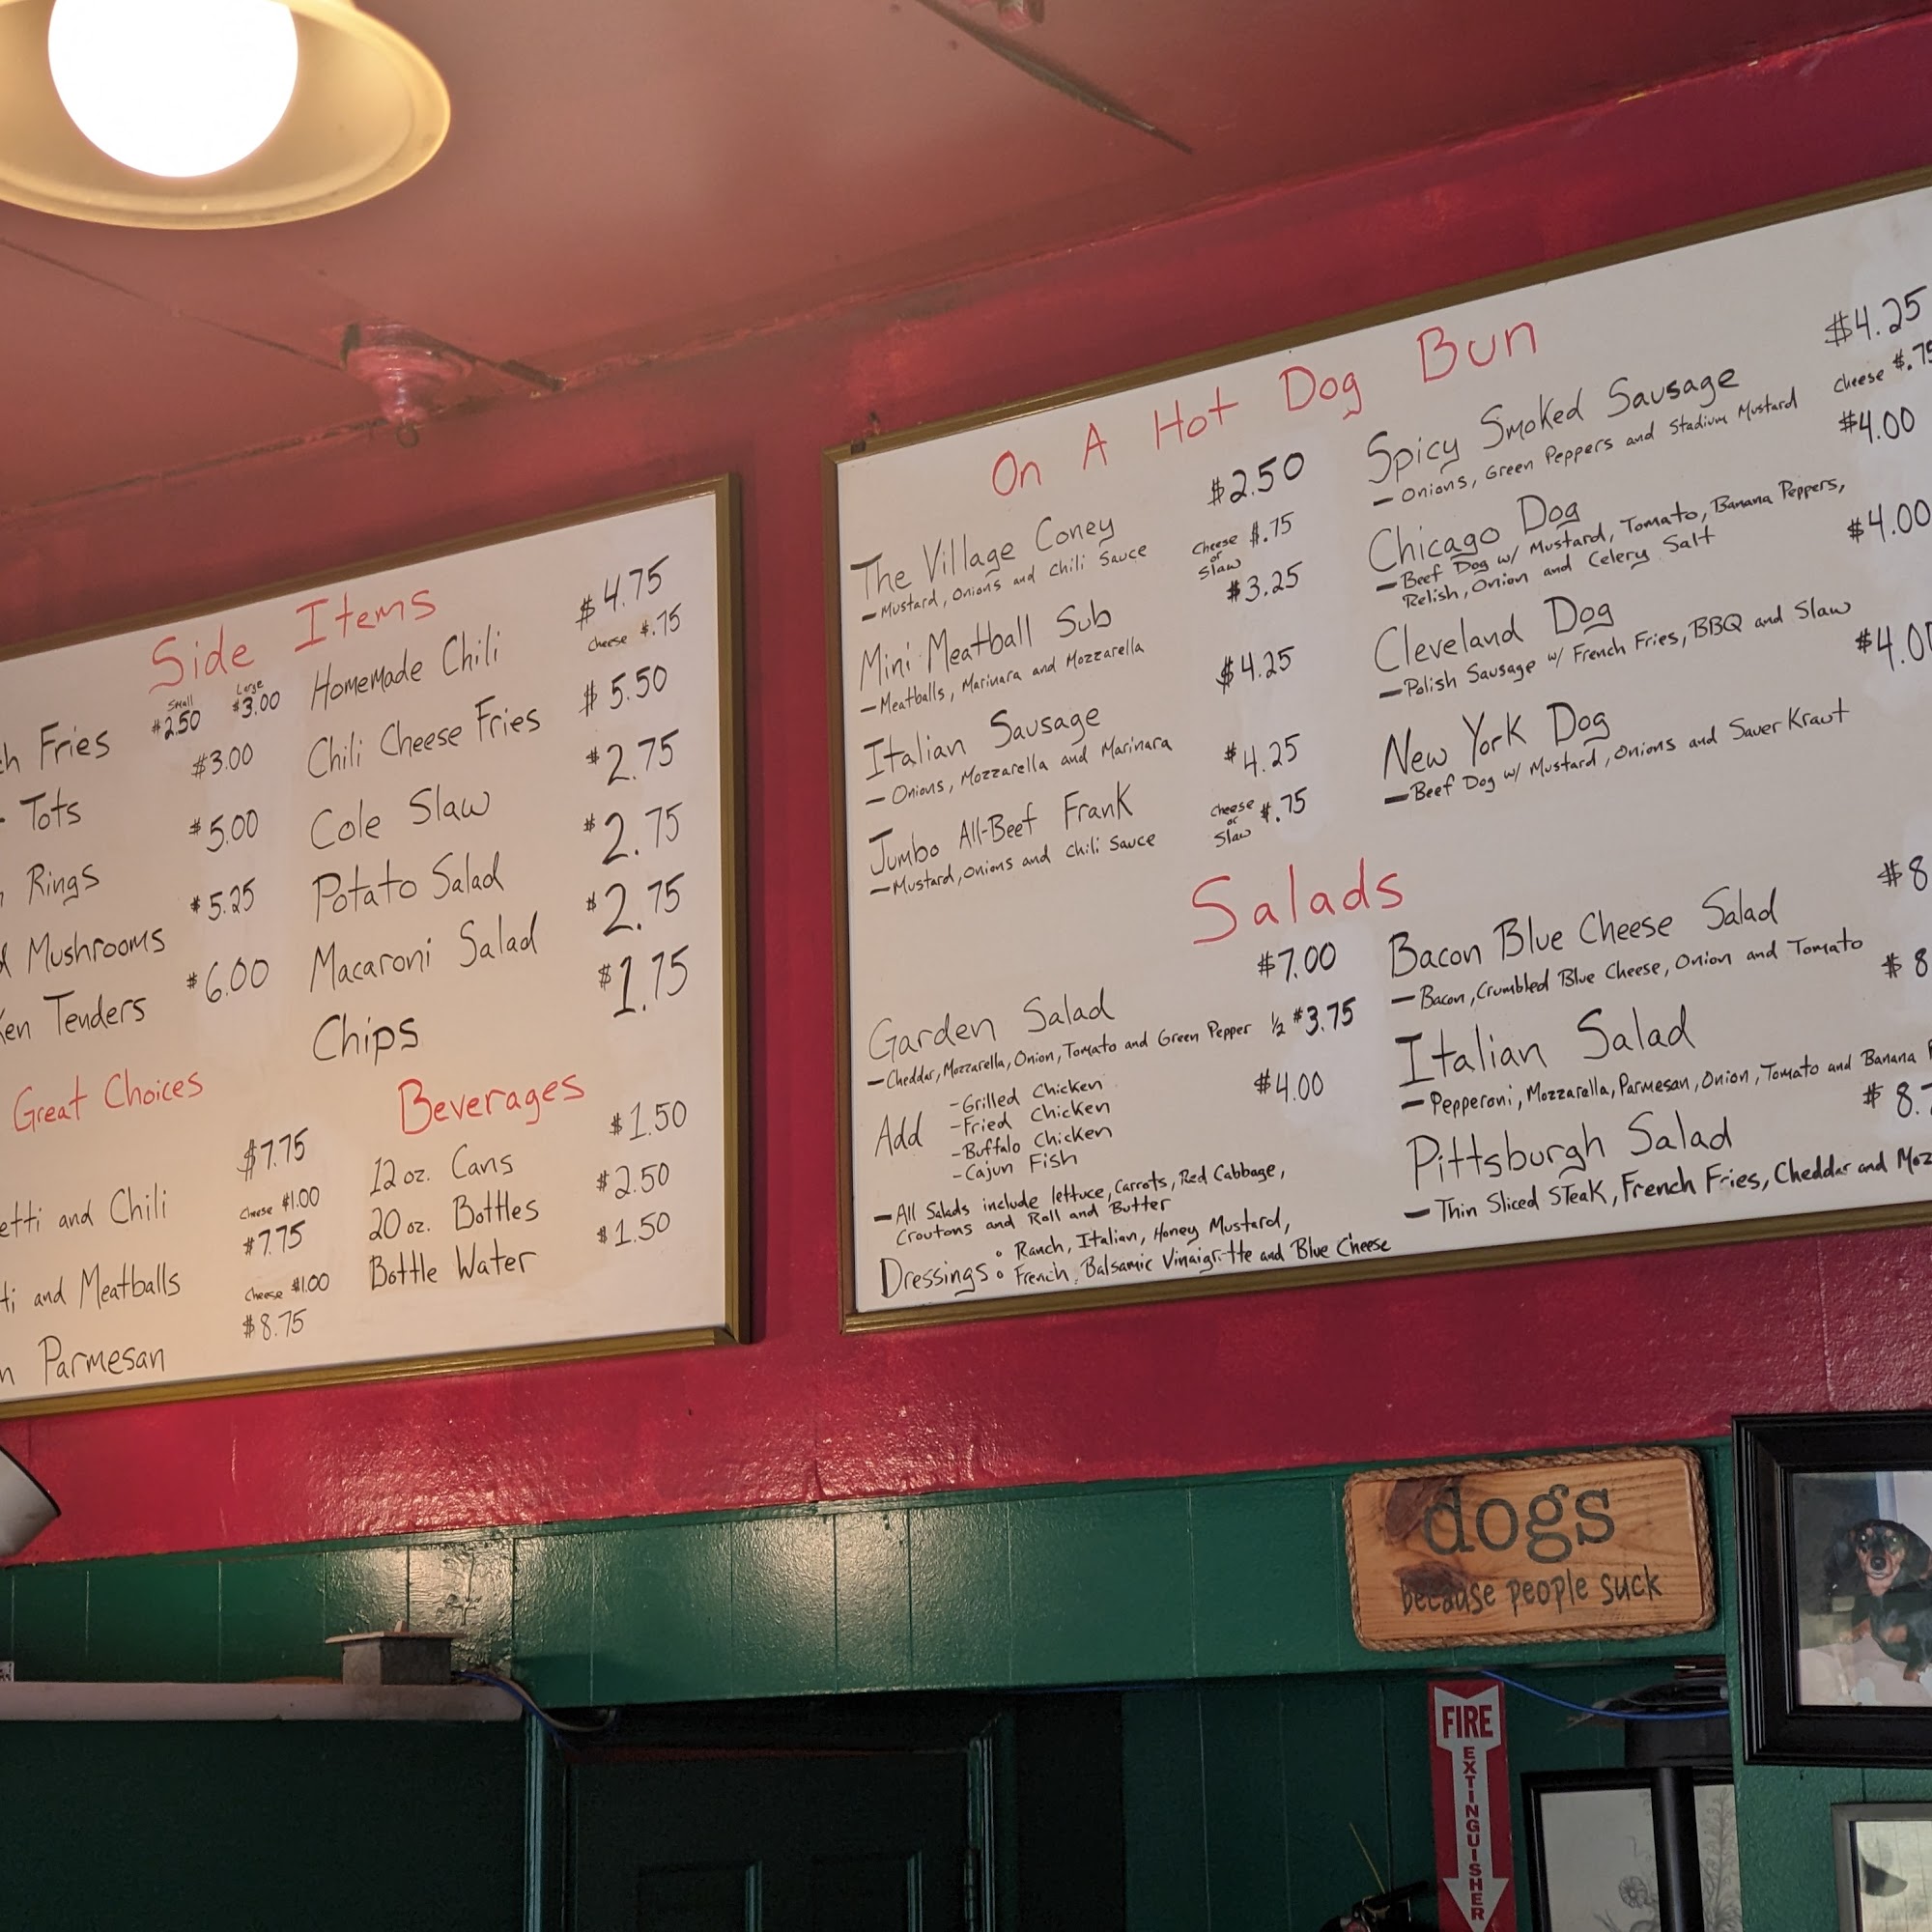 Side Items
Small Large
Fries $2.50 $3.00
Tots $3.00
Rings $5.00
Mushrooms $5.25
Tenders $6.00
Homemade Chili $4.75
Cheese $.75
Chili Cheese Fries $5.50
Cole Slaw $2.75
Potato Salad $2.75
Macaroni Salad $2.75
Chips $1.75
Great Choices
and Chili $7.75
Cheese $1.00
and Meatballs $7.75
Cheese $1.00
Parmesan $8.75
Beverages
12 oz. Cans $1.50
20 oz. Bottles $2.50
Bottle Water $1.50
On A Hot Dog Bun
The Village Coney $2.50
- Mustard, Onions and Chili Sauce Cheese or Slaw $.75
Mini Meatball Sub $3.25
- Meatballs, Marinara and Mozzarella
Italian Sausage $4.25
- Onions, Mozzarella and Marinara
Jumbo All-Beef Frank $4.25
- Mustard, Onions and Chili Sauce Cheese or Slaw $.75
Spicy Smoked Sausage $4.25
- Onions, Green Peppers and Stadium Mustard Cheese $.75
Chicago Dog $4.00
- Beef Dog w/ Mustard, Tomato, Banana Peppers,
Relish, Onion and Celery Salt
Cleveland Dog $4.00
- Polish Sausage w/ French Fries, BBQ and Slaw
New York Dog $4.00
- Beef Dog w/ Mustard, Onions and Sauer Kraut
Salads
Garden Salad $7.00
- Cheddar, Mozzarella, Onion, Tomato and Green Pepper 1/2 $3.75
Add - Grilled Chicken $4.00
- Fried Chicken
- Buffalo Chicken
- Cajun Fish
- All Salads include lettuce, Carrots, Red Cabbage,
Croutons and Roll and Butter
Dressings: • Ranch, Italian, Honey Mustard,
• French, Balsamic Vinaigrette and Blue Cheese
Bacon Blue Cheese Salad $8
- Bacon, Crumbled Blue Cheese, Onion and Tomato
Italian Salad $8
- Pepperoni, Mozzarella, Parmesan, Onion, Tomato and Banana
Pittsburgh Salad $8.
- Thin Sliced Steak, French Fries, Cheddar and
dogs
because people suck
FIRE
EXTINGUISHER